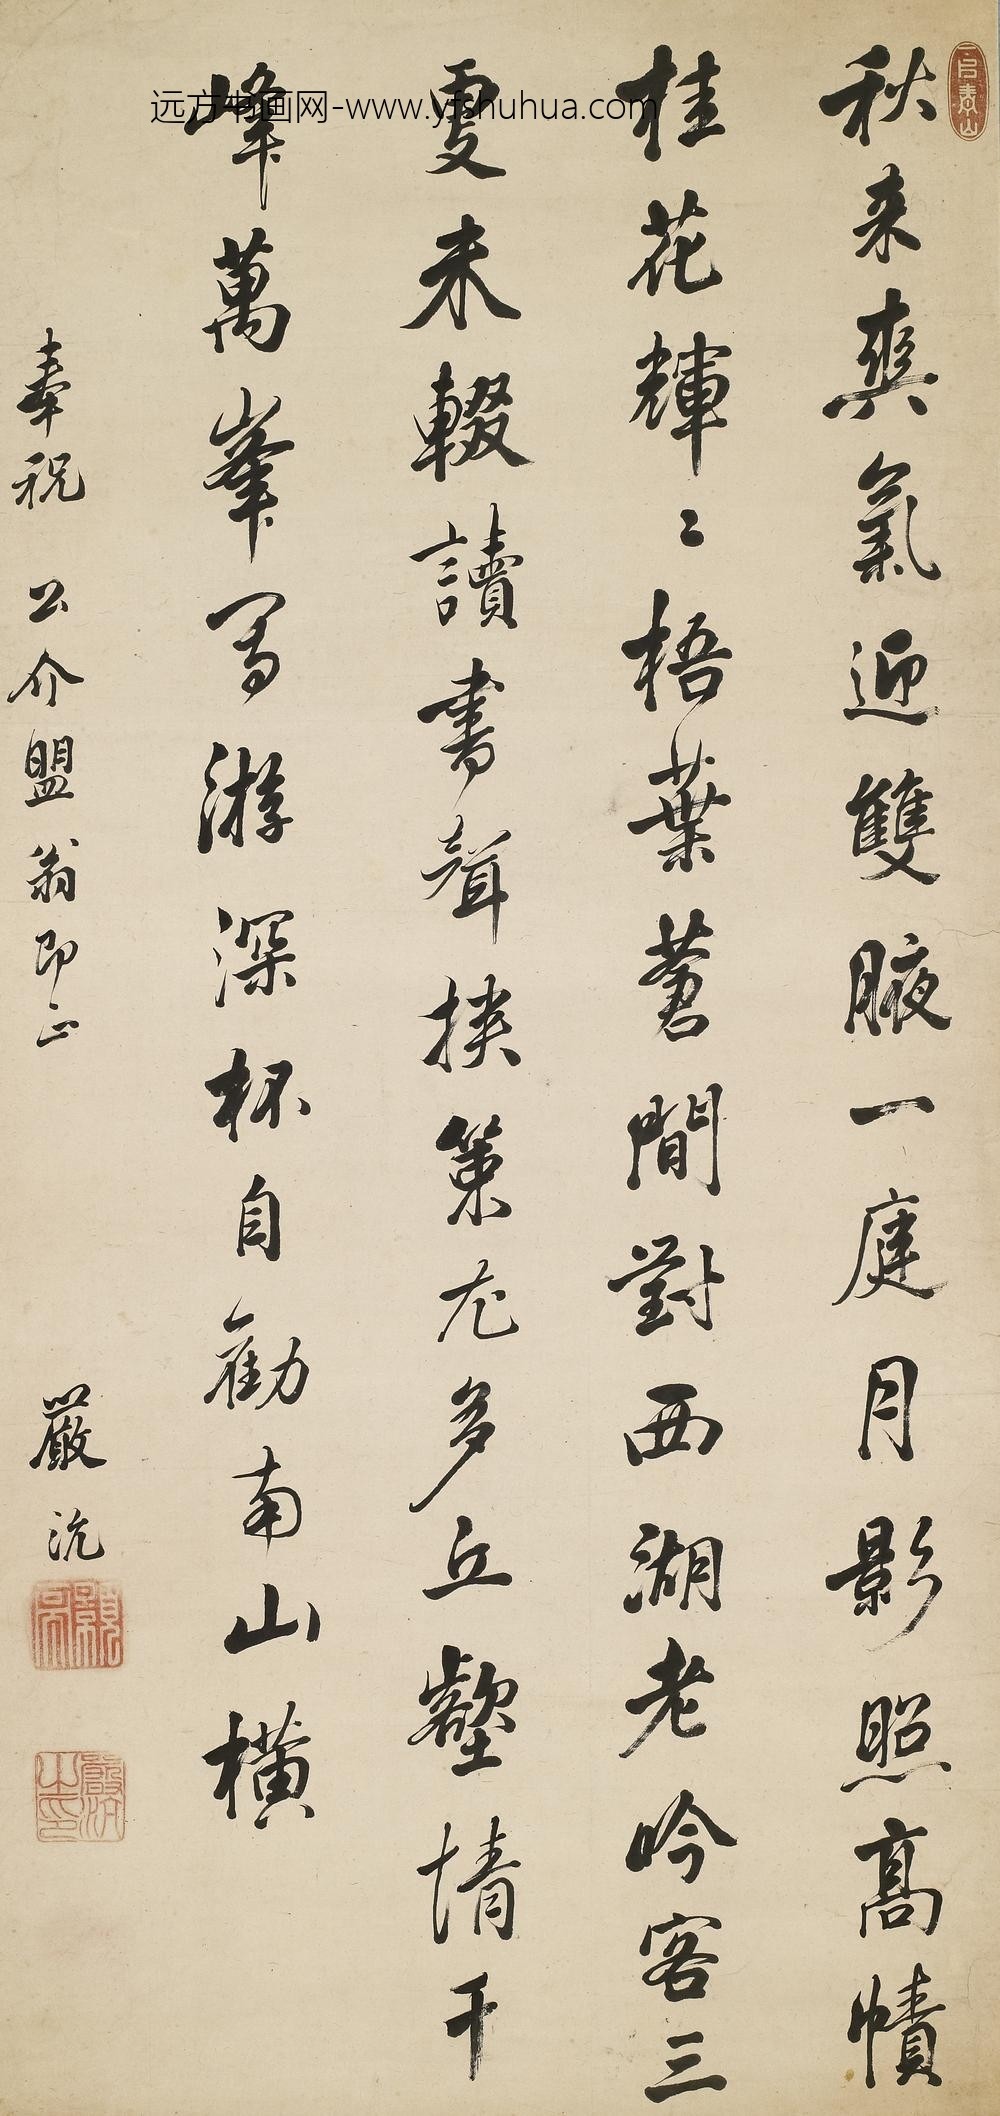 秋来爽氣迎雙腋一庭月影照高幘
桂花輝〻梧葉蒼間對西湖老吟客三
憂未輟讀書聲挾策尤多丘壑情千
峰萬峯寄游深杯自勸南山橫
奉祝 公介盟翁即正
嚴沆
嚴沆之印
远方书画网-www.yfshuhua.com